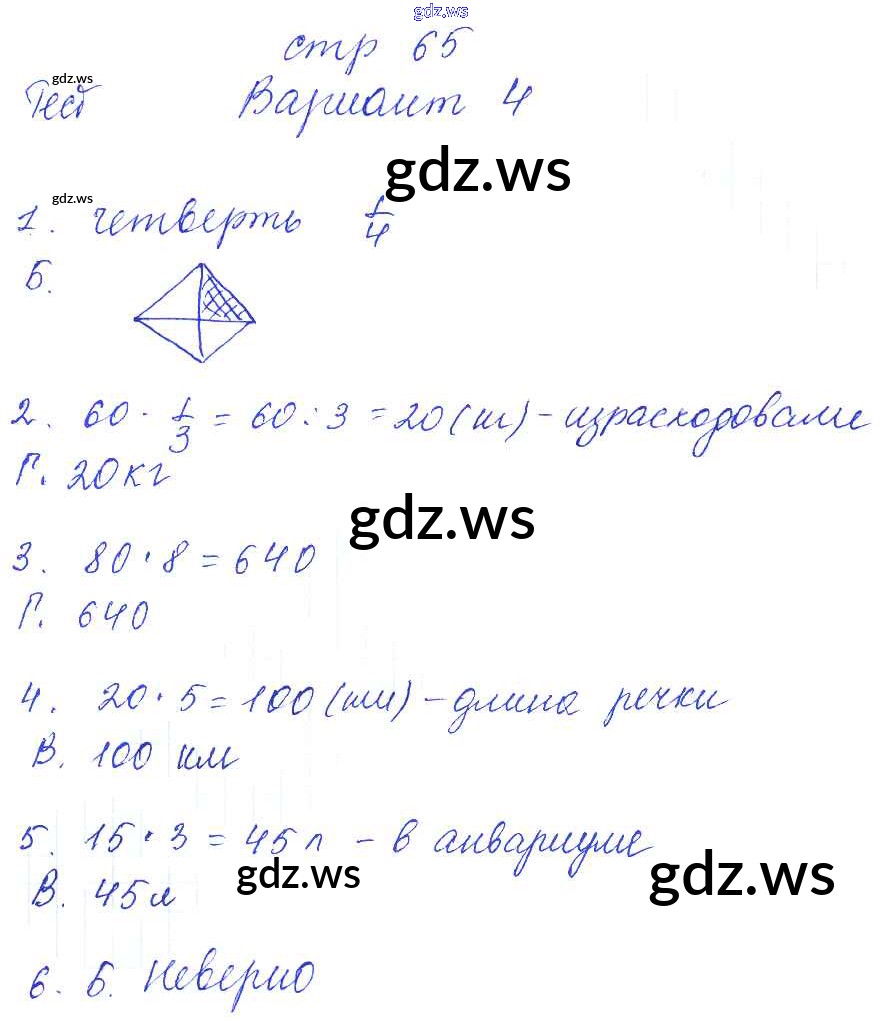 gdz.ws
стр 65
gdz.ws
Тест Вариант 4
gdz.ws
gdz.ws
1. четверть 1/4
Б.
2. 60 · 1/3 = 60 : 3 = 20 (кг) - израсходовали
Г. 20 кг
gdz.ws
3. 80 · 8 = 640
Г. 640
4. 20 · 5 = 100 (км) - длина речки
В. 100 км
5. 15 · 3 = 45 л - в аквариуме
gdz.ws gdz.ws
В. 45 л
6. Б. Неверно